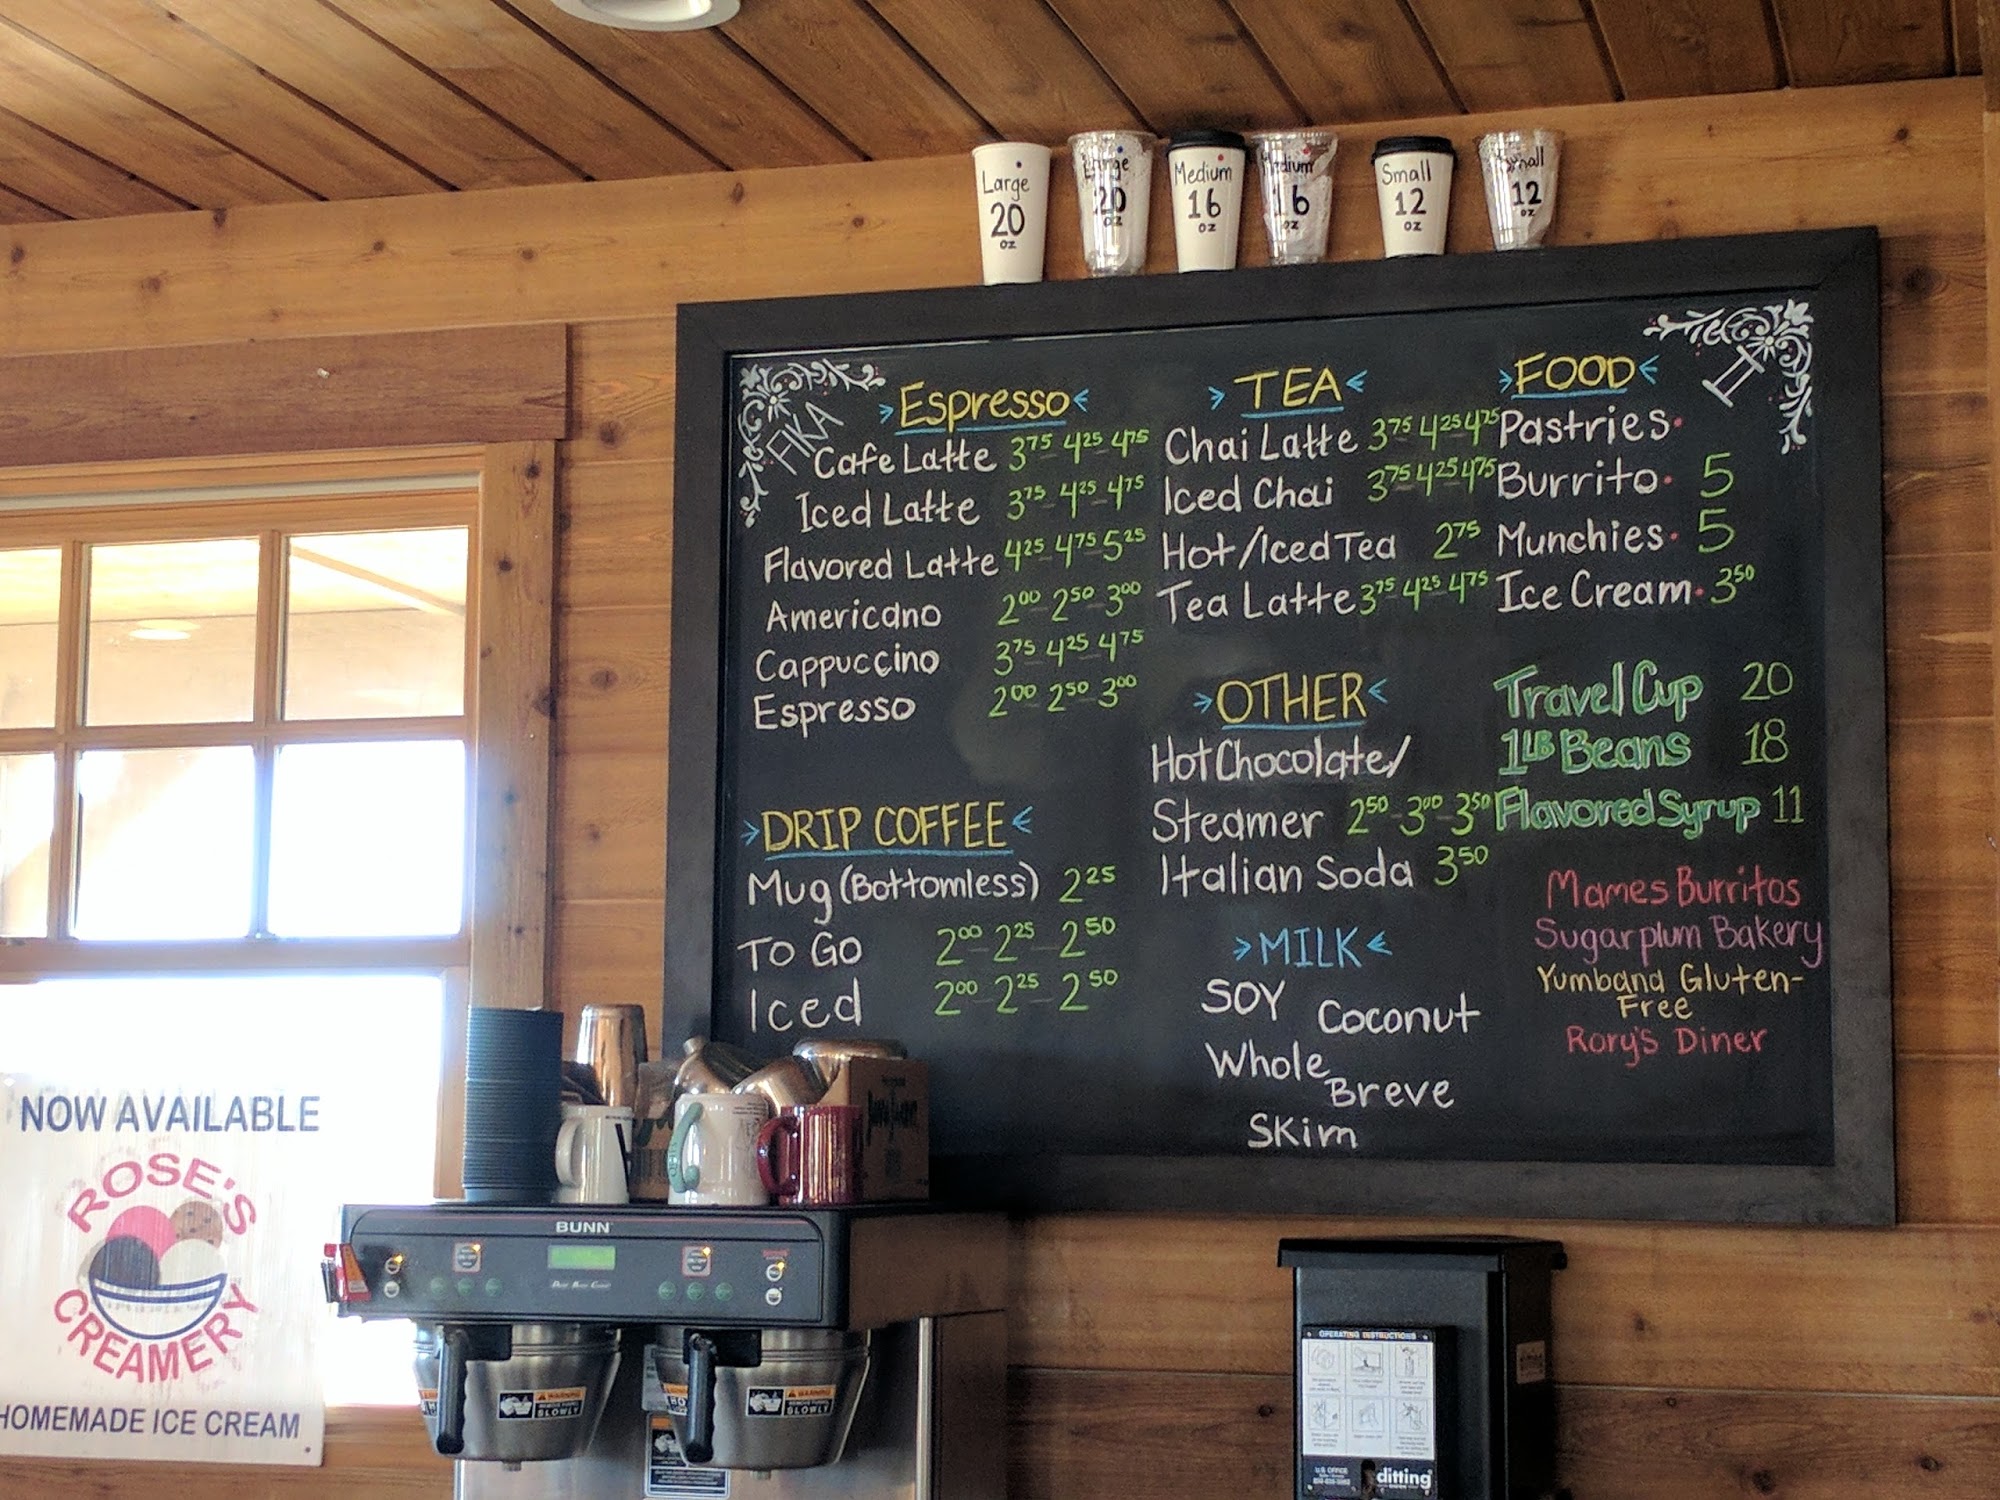 Large 20 oz
Large 20 oz
Medium 16 oz
Medium 16 oz
Small 12 oz
Small 12 oz
FIKA
II
Espresso
Cafe Latte 3.75 4.25 4.75
Iced Latte 3.75 4.25 4.75
Flavored Latte 4.25 4.75 5.25
Americano 2.00 2.50 3.00
Cappuccino 3.75 4.25 4.75
Espresso 2.00 2.50 3.00
DRIP COFFEE
Mug (Bottomless) 2.25
To Go 2.00 2.25 2.50
Iced 2.00 2.25 2.50
TEA
Chai Latte 3.75 4.25 4.75
Iced Chai 3.75 4.25 4.75
Hot/Iced Tea 2.75
Tea Latte 3.75 4.25 4.75
OTHER
Hot Chocolate/
Steamer 2.50 3.00 3.50
Italian Soda 3.50
MILK
SOY Coconut
Whole
Breve
Skim
FOOD
Pastries
Burrito 5
Munchies 5
Ice Cream 3.50
Travel Cup 20
1LB Beans 18
Flavored Syrup 11
Mames Burritos
Sugarplum Bakery
Yumbana Gluten-
Free
Rory's Diner
NOW AVAILABLE
ROSE'S
CREAMERY
HOMEMADE ICE CREAM
BUNN
WARNING
SLOWLY
WARNING
SLOWLY
OPERATING INSTRUCTIONS
U.S. OFFICE
ditting